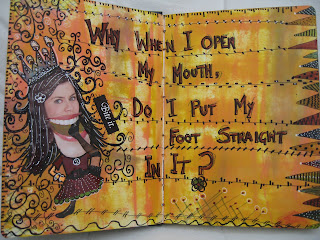 Why When I open
My Mouth,
Do I Put My
Foot Straight
In It?